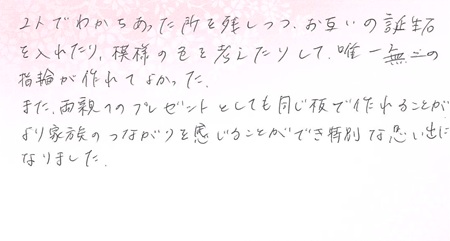 ユトでわかちあった所を残しつつ、お互いの誕生石
を入れたり、模様の色を考えたりして、唯一無二の
指輪が作れてよかった。
また、両親へのプレゼントとしても同じ板で作れることが
より家族のつながりを感じることができ特別な思い出に
なりました。